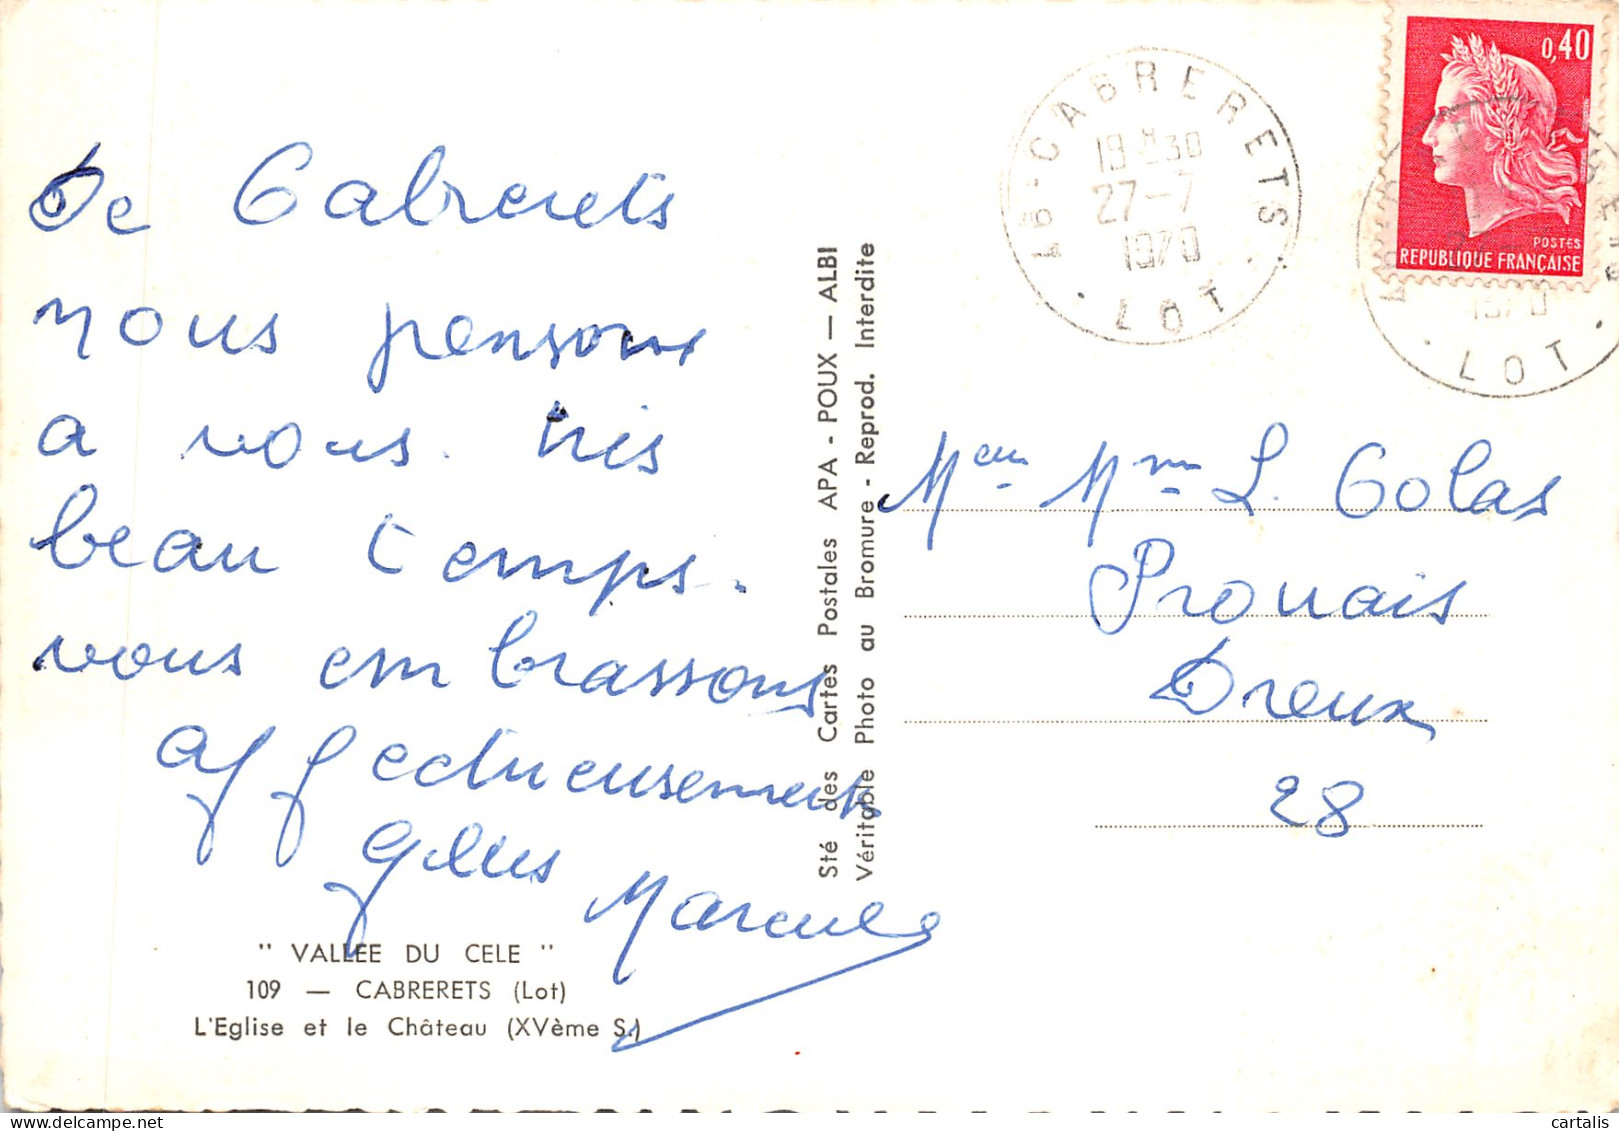 De Cabrerets
nous pensons
a vous. tris
beau temps.
vous embrassons
affectueusement
Marcule
" VALLEE DU CELE "
109 — CABRERETS (Lot)
L'Eglise et le Château (XVème S.)
Sté des Cartes Postales APA - POUX — ALBI
Véritable Photo au Bromure - Reprod. Interdite
46 - CABRERETS
19H30
27-7
1970
LOT
0,40
POSTES
REPUBLIQUE FRANÇAISE
1970
LOT
L. Colas
Prouais
Dreux
28
cartalis